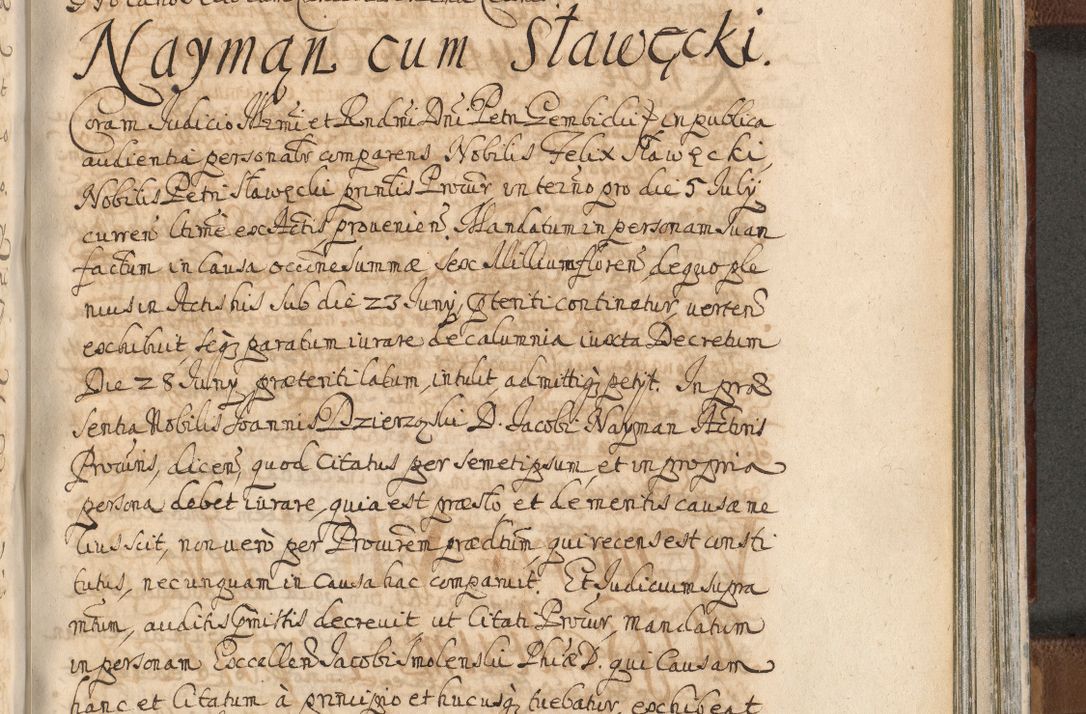 Nayman cum Sławęcki.
Coram Judicio Illmi et Rndmi Dni Petri Gembicki in publica
audientia personalr comparens Nobilis Felix Sławęcki,
Nobilis Petri Sławęcki prinlis Procur in termo pro die 5 July
curren ltime ex Actis provenien. Mandatum in personam suan
factum in causa occne summæ sex Millium floren, de quo ple
nius in Actis his sub die 23 Juny, ꝓteriti continetur, verten
exhibuit, seqꝫ paratum iurare de calumnia iuxta Decretum
Die 28 Juny præteriti latum, intulit, admittiqꝫ petyt. In præ
sentia Nobilis Joannis Dzierzęski D. Jacobi Nayman Actoris
Procuris, dicen, quod Citatus per semetipsum, et in propria
persona debet iurare, quia est præsto et de mentis causæ me
lius scit, non vero per Procurem prædtum, qui recens est consti
tutus, nec unquam in Causa hac comparuit. Et Judicium supra
mtum, auditis præmissis decrevit ut Citati Procur, mandatum
in personam Excellen Jacobi Smolenski Phiæ D. qui Causam
hanc et Citatum à principio et hucusqꝫ tuebatur, exhibeat